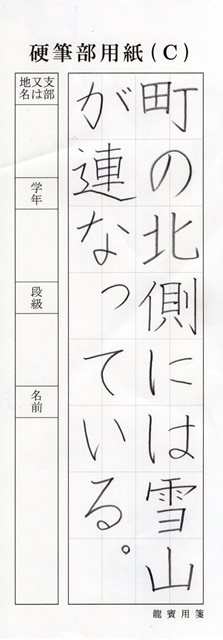 硬筆部用紙(C)
町の北側には雪山
が連なっている。
支部
又は
地名
学年
段級
名前
龍賓用箋